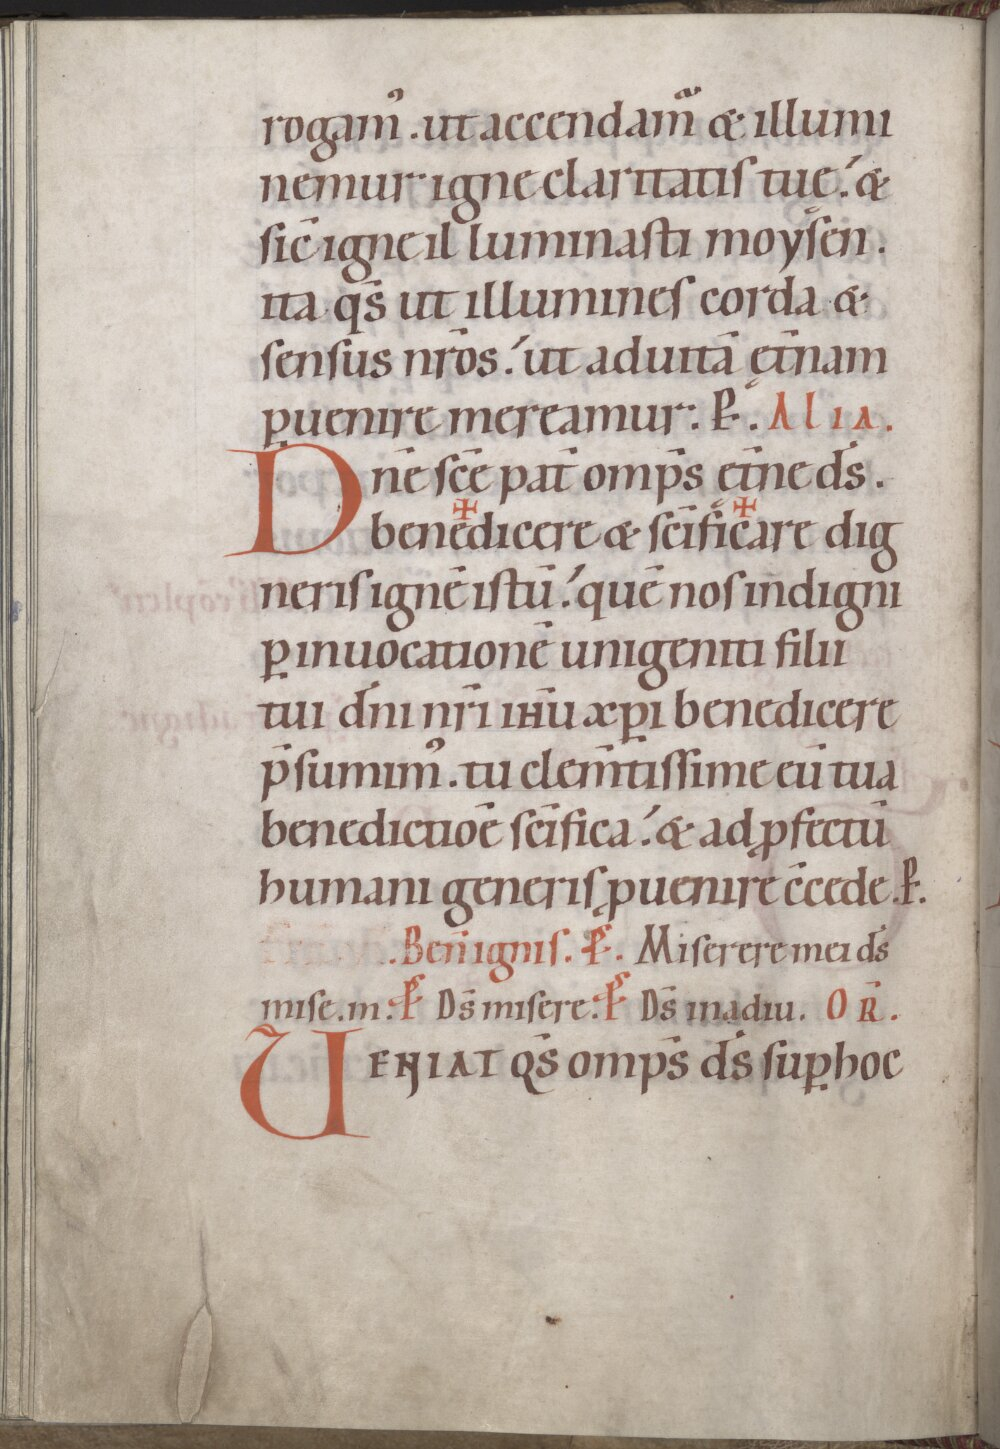 rogam᾽. ut accendam̃ & illumi
nemur igne claritatis tuę. &
sic̄ igne il luminasti moysen.
ita qs̄ ut illumines corda &
sensus nr̄os. ut ad uitā ęt̄nam
ꝑuenire mereamur. P̱. Alia.
Dn̄e sc̄e pat̄ omp̄s ęt̄ne ds̄.
bene✠dicere & sc̄ific✠are dig
neris ignē istū. quē nos indigni
ꝑ inuocationē unigeniti filii
tui dn̄i nr̄i ihu̅ xp̄i benedicere
p̄sumim᾽. tu clem̄tissime eū tua
benedictioē sc̄ifica. & ad ꝓfectū
humani generis ꝑuenire c̄cede. P̱.
. Ben̄ ignis. Ps̄. Miserere mei ds̄
mise. m. Ps̄ Ds̄ misere. Ps̄ Ds̄ in adiu. OR̄.
UENIAT qs̄ omp̄s ds̄ suꝑ hoc